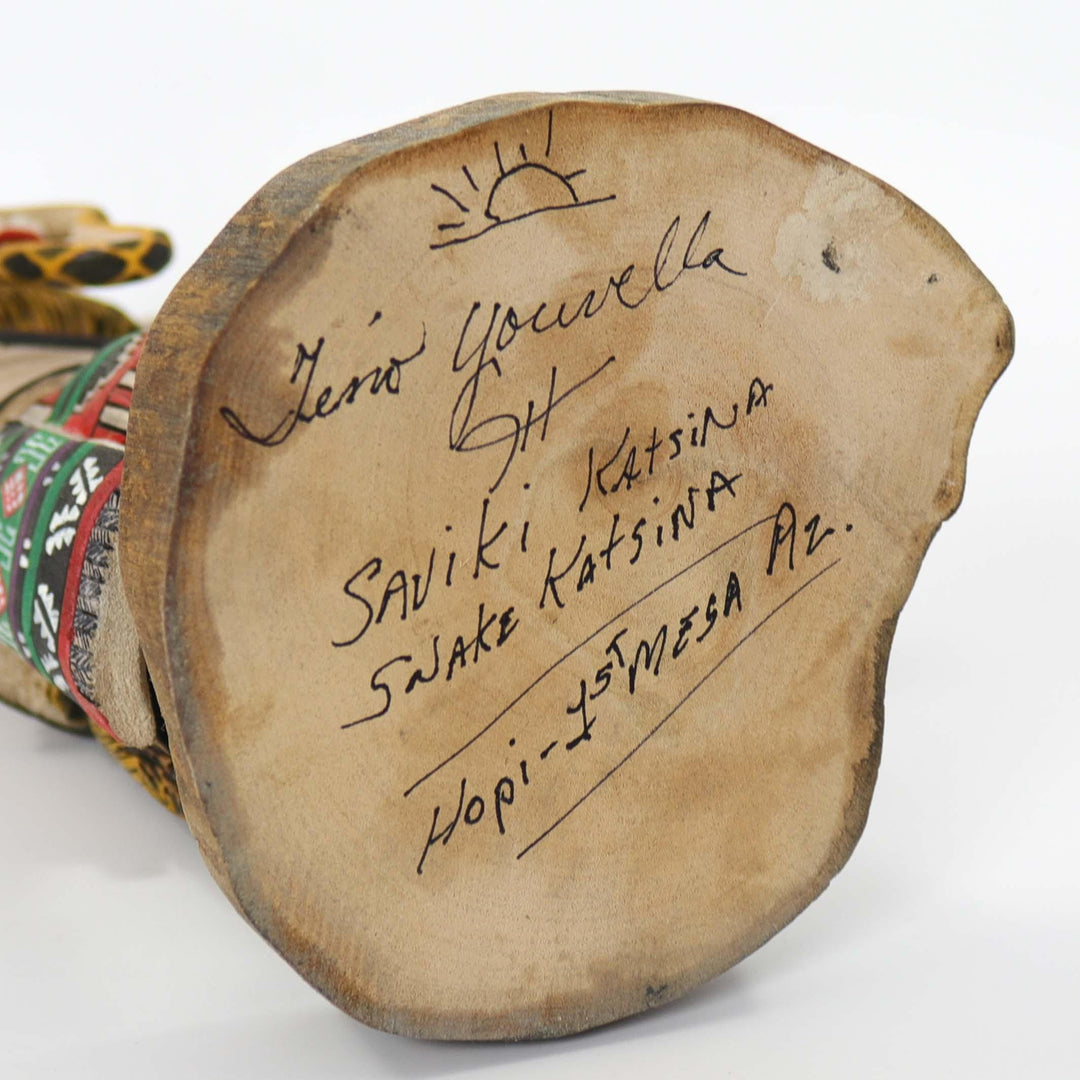 Tino Youvella
SAViKi KAtSiNA
SNAKE KAtSiNA
Hopi-1ST MESA Az.